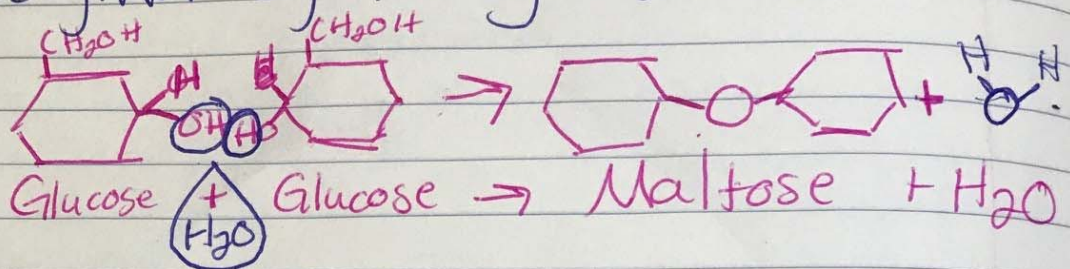 CH2OH CH2OH
H H H H
OH HO O + O
Glucose + Glucose → Maltose + H2O
H2O